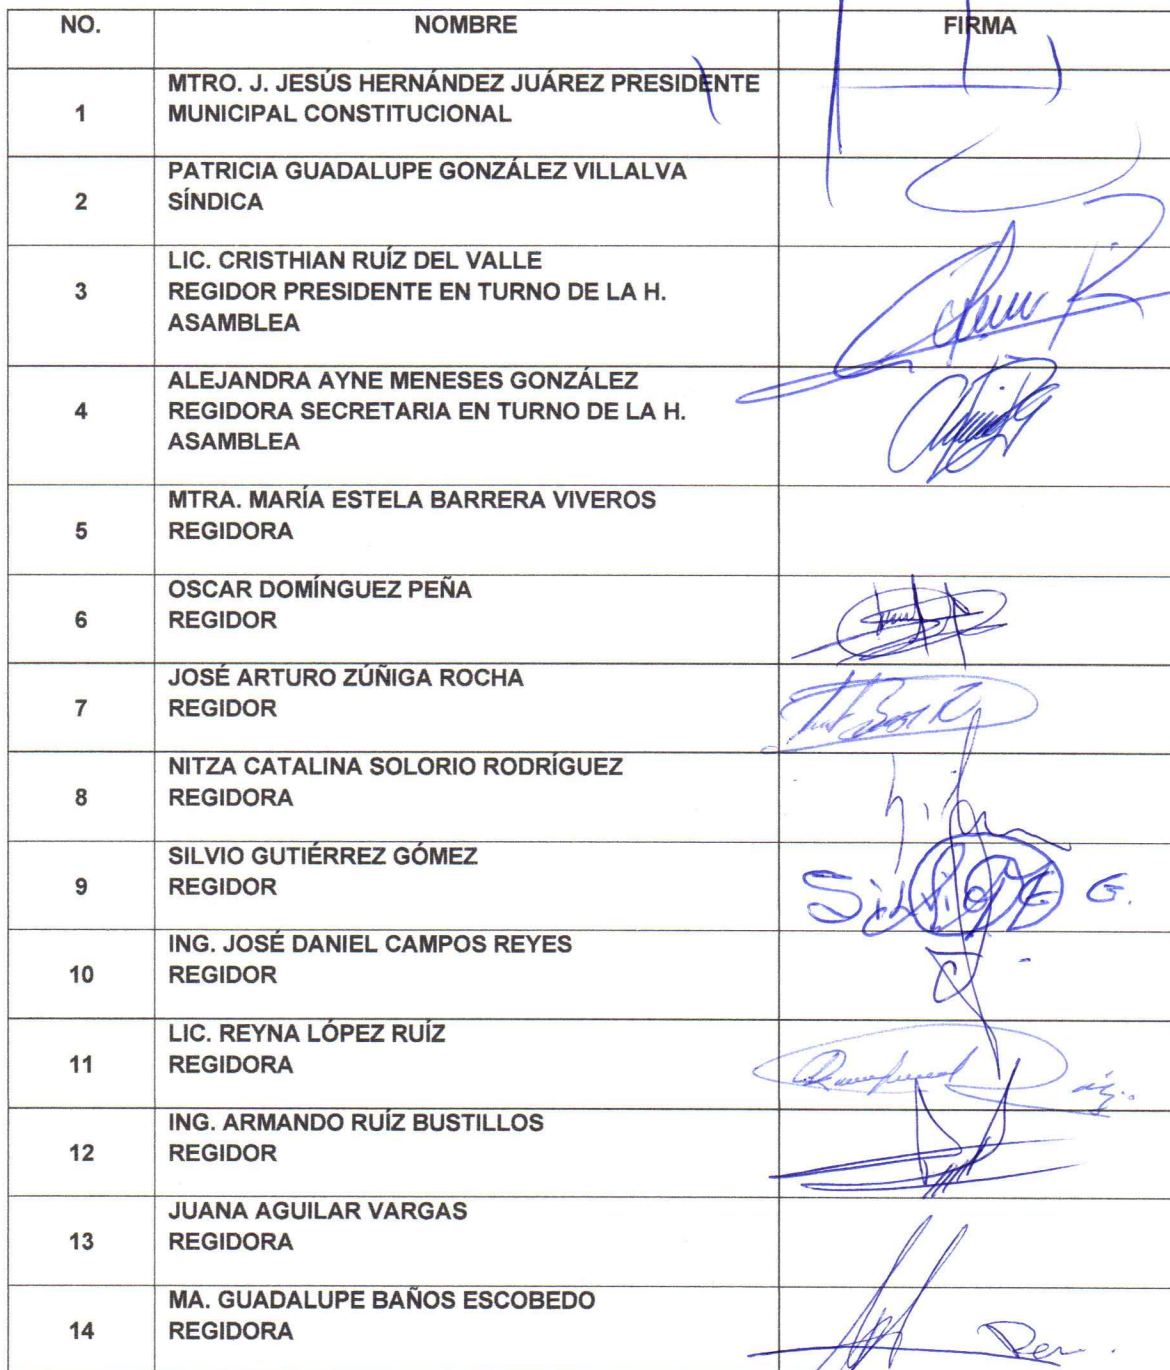 NO. NOMBRE FIRMA
MTRO. J. JESÚS HERNÁNDEZ JUÁREZ PRESIDENTE
1 MUNICIPAL CONSTITUCIONAL
PATRICIA GUADALUPE GONZÁLEZ VILLALVA
2 SÍNDICA
LIC. CRISTHIAN RUÍZ DEL VALLE
3 REGIDOR PRESIDENTE EN TURNO DE LA H.
ASAMBLEA
ALEJANDRA AYNE MENESES GONZÁLEZ
4 REGIDORA SECRETARIA EN TURNO DE LA H.
ASAMBLEA
MTRA. MARÍA ESTELA BARRERA VIVEROS
5 REGIDORA
OSCAR DOMÍNGUEZ PEÑA
6 REGIDOR
JOSÉ ARTURO ZÚÑIGA ROCHA
7 REGIDOR
NITZA CATALINA SOLORIO RODRÍGUEZ
8 REGIDORA
SILVIO GUTIÉRREZ GÓMEZ
9 REGIDOR Silvio G G.
ING. JOSÉ DANIEL CAMPOS REYES
10 REGIDOR
LIC. REYNA LÓPEZ RUÍZ
11 REGIDORA
ING. ARMANDO RUÍZ BUSTILLOS
12 REGIDOR
JUANA AGUILAR VARGAS
13 REGIDORA
MA. GUADALUPE BAÑOS ESCOBEDO
14 REGIDORA